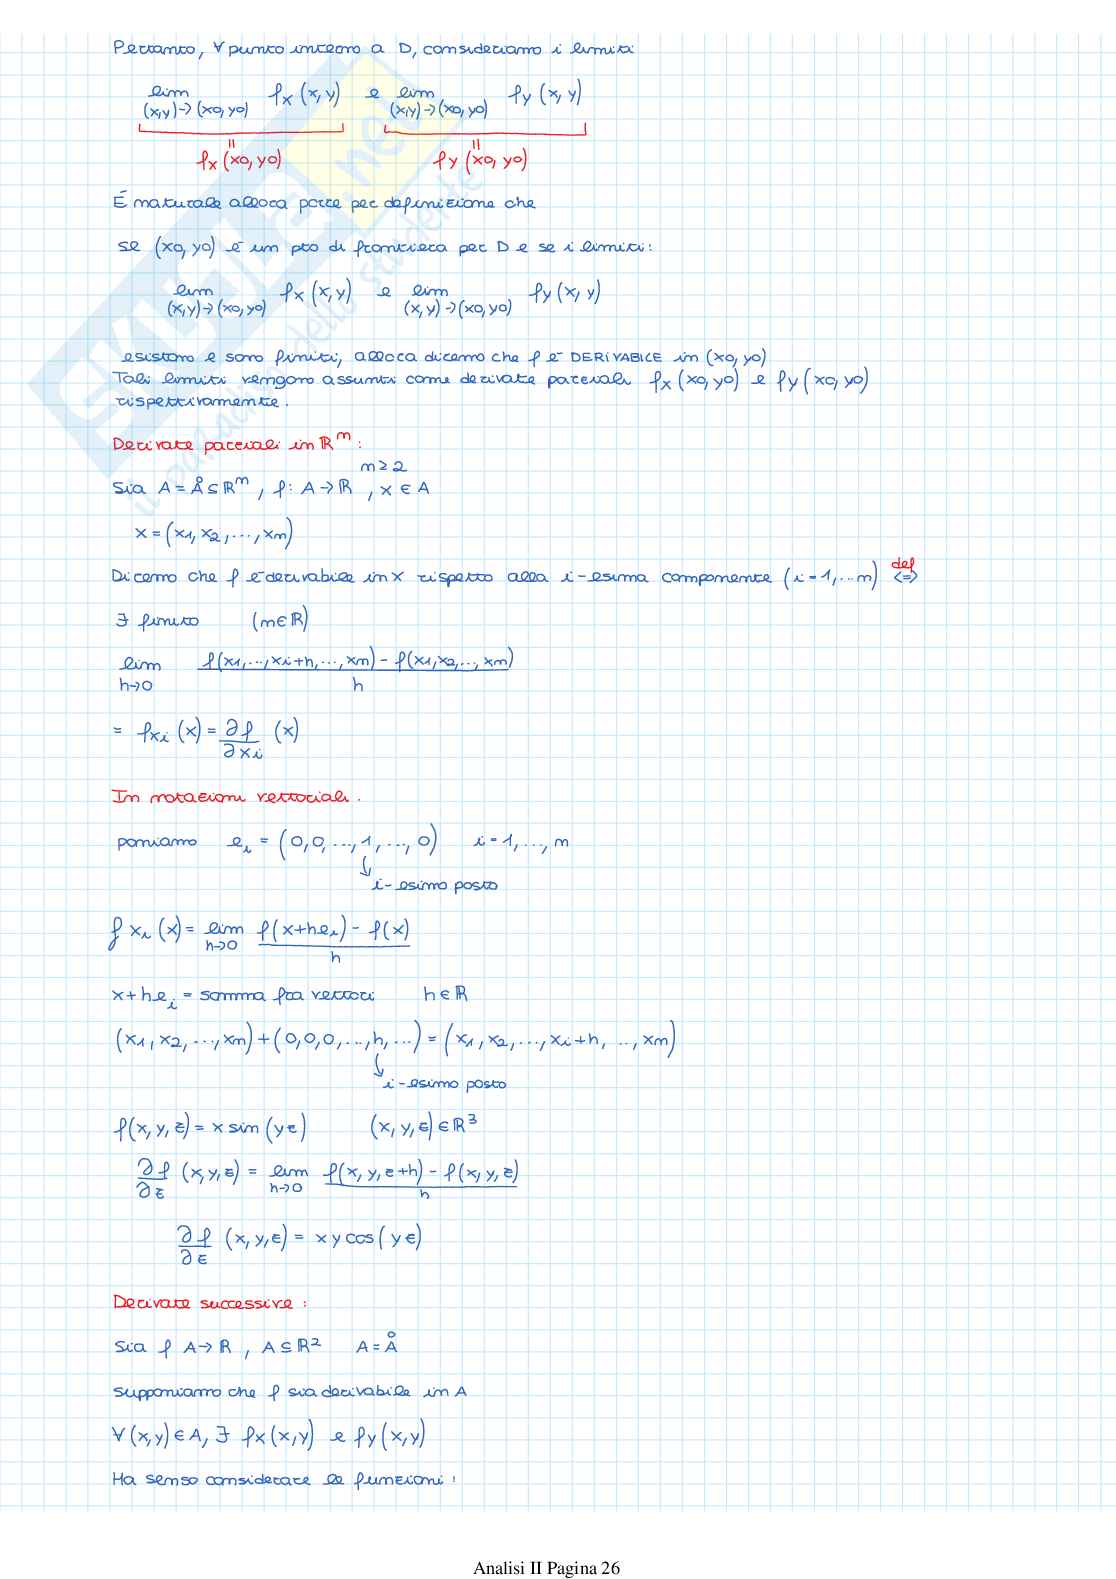 Pertanto, ∀ punto interno a D, consideriamo i limiti
lim (x,y)→(x0,y0) fx (x,y) e lim (x,y)→(x0,y0) fy (x,y)
= fx (x0,y0) = fy (x0,y0)
É naturale allora porre per definizione che
se (x0,y0) è un pto di frontiera per D e se i limiti:
lim (x,y)→(x0,y0) fx (x,y) e lim (x,y)→(x0,y0) fy (x,y)
esistono e sono finiti, allora diremo che f è DERIVABILE in (x0,y0)
Tali limiti vengono assunti come derivate parziali fx (x0,y0) e fy (x0,y0)
rispettivamente.
Derivate parziali in ℝⁿ:
n≥2
Sia A=Å⊆ℝⁿ, f: A→ℝ, x∈A
x=(x1,x2,...,xn)
Diremo che f è derivabile in x rispetto alla i-esima componente (i=1,...n) def <=>
∃ finito (n∈ℝ)
lim h→0 f(x1,...,xi+h,...,xn)-f(x1,x2,...,xn) / h
= fxi (x) = ∂f/∂xi (x)
In notazioni vettoriali.
poniamo ei = (0,0,...,1,...,0) i=1,...,n
i-esimo posto
f xi (x) = lim h→0 f(x+hei)-f(x) / h
x+hei = somma fra vettori h∈ℝ
(x1,x2,...,xn)+(0,0,0,...,h,...)=(x1,x2,...,xi+h,...,xn)
i-esimo posto
f(x,y,z)=x sin(yz) (x,y,z)∈ℝ³
∂f/∂z (x,y,z) = lim h→0 f(x,y,z+h)-f(x,y,z) / h
∂f/∂z (x,y,z) = xy cos(yz)
Derivate successive:
Sia f A→ℝ, A⊆ℝ² A=Å
supponiamo che f sia derivabile in A
∀(x,y)∈A, ∃ fx(x,y) e fy(x,y)
Ha senso considerare le funzioni:
SKUOLA.net
il paradiso dello studente
Analisi II Pagina 26